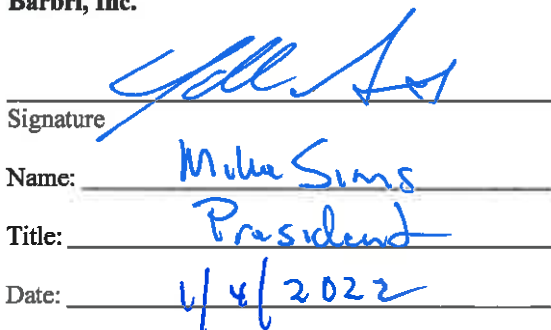 Barbri, Inc.
Signature
Name: Mike Sims
Title: President
Date: 1/4/2022